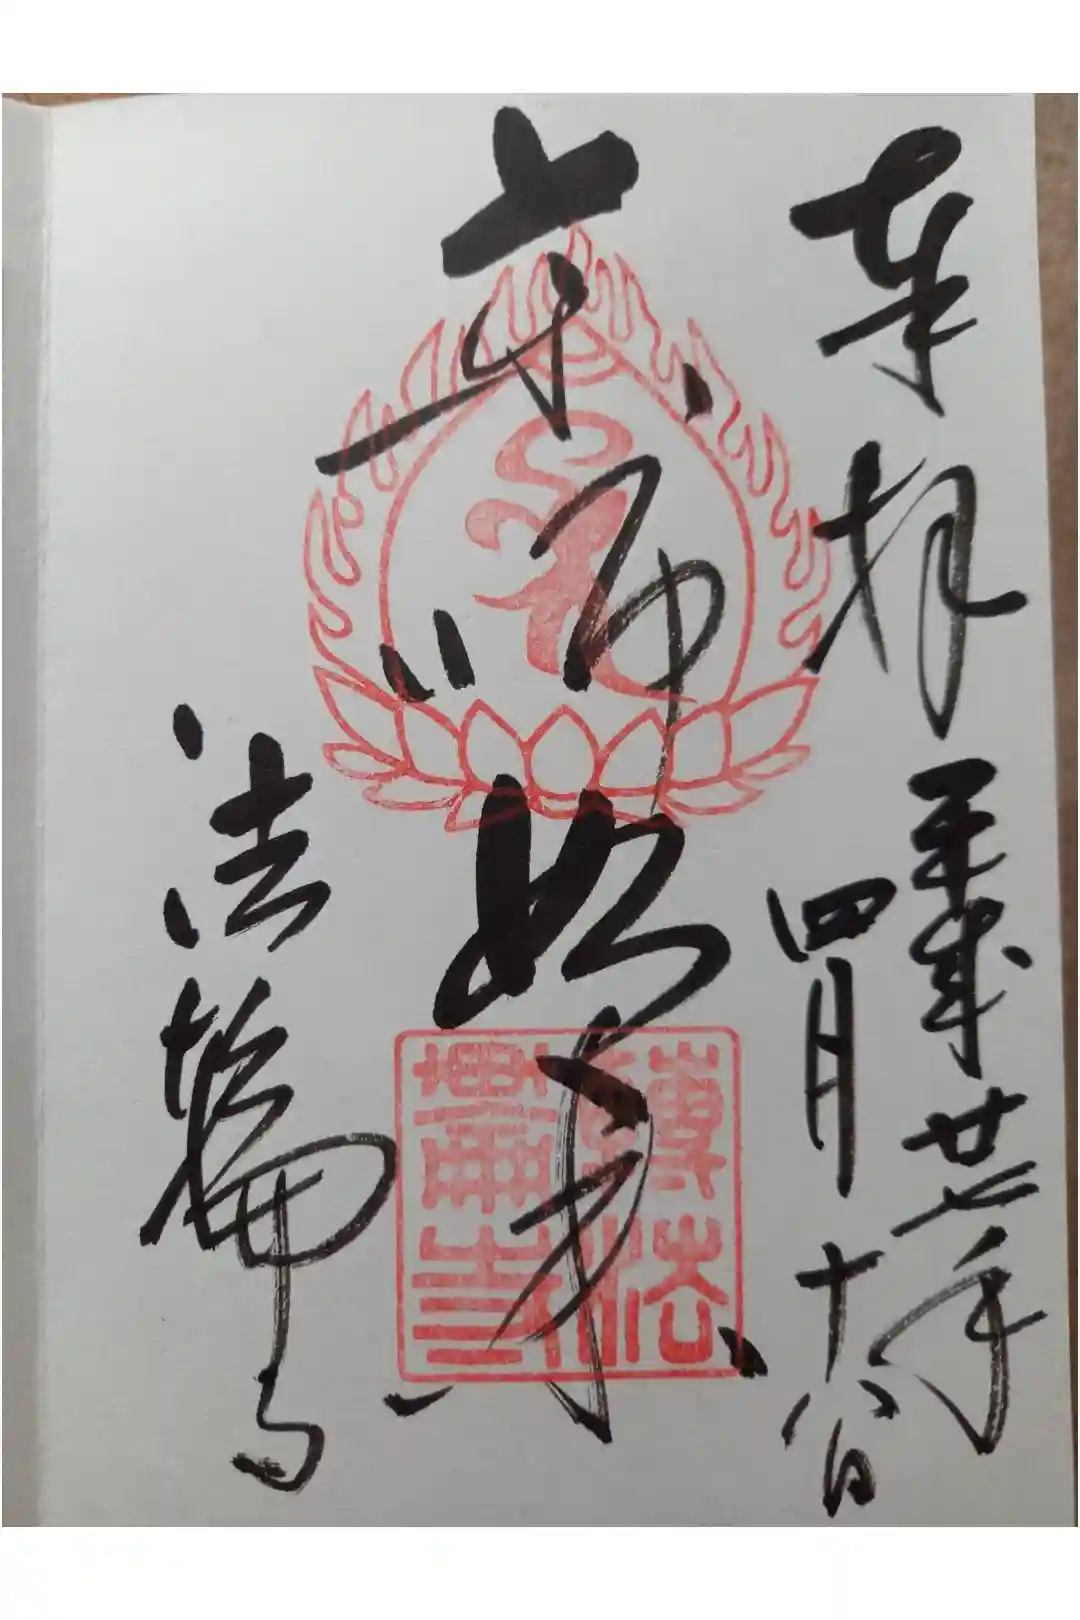 奉拝
平成廿七年
四月十八日
薬師如来
法輪寺
轉法輪寺